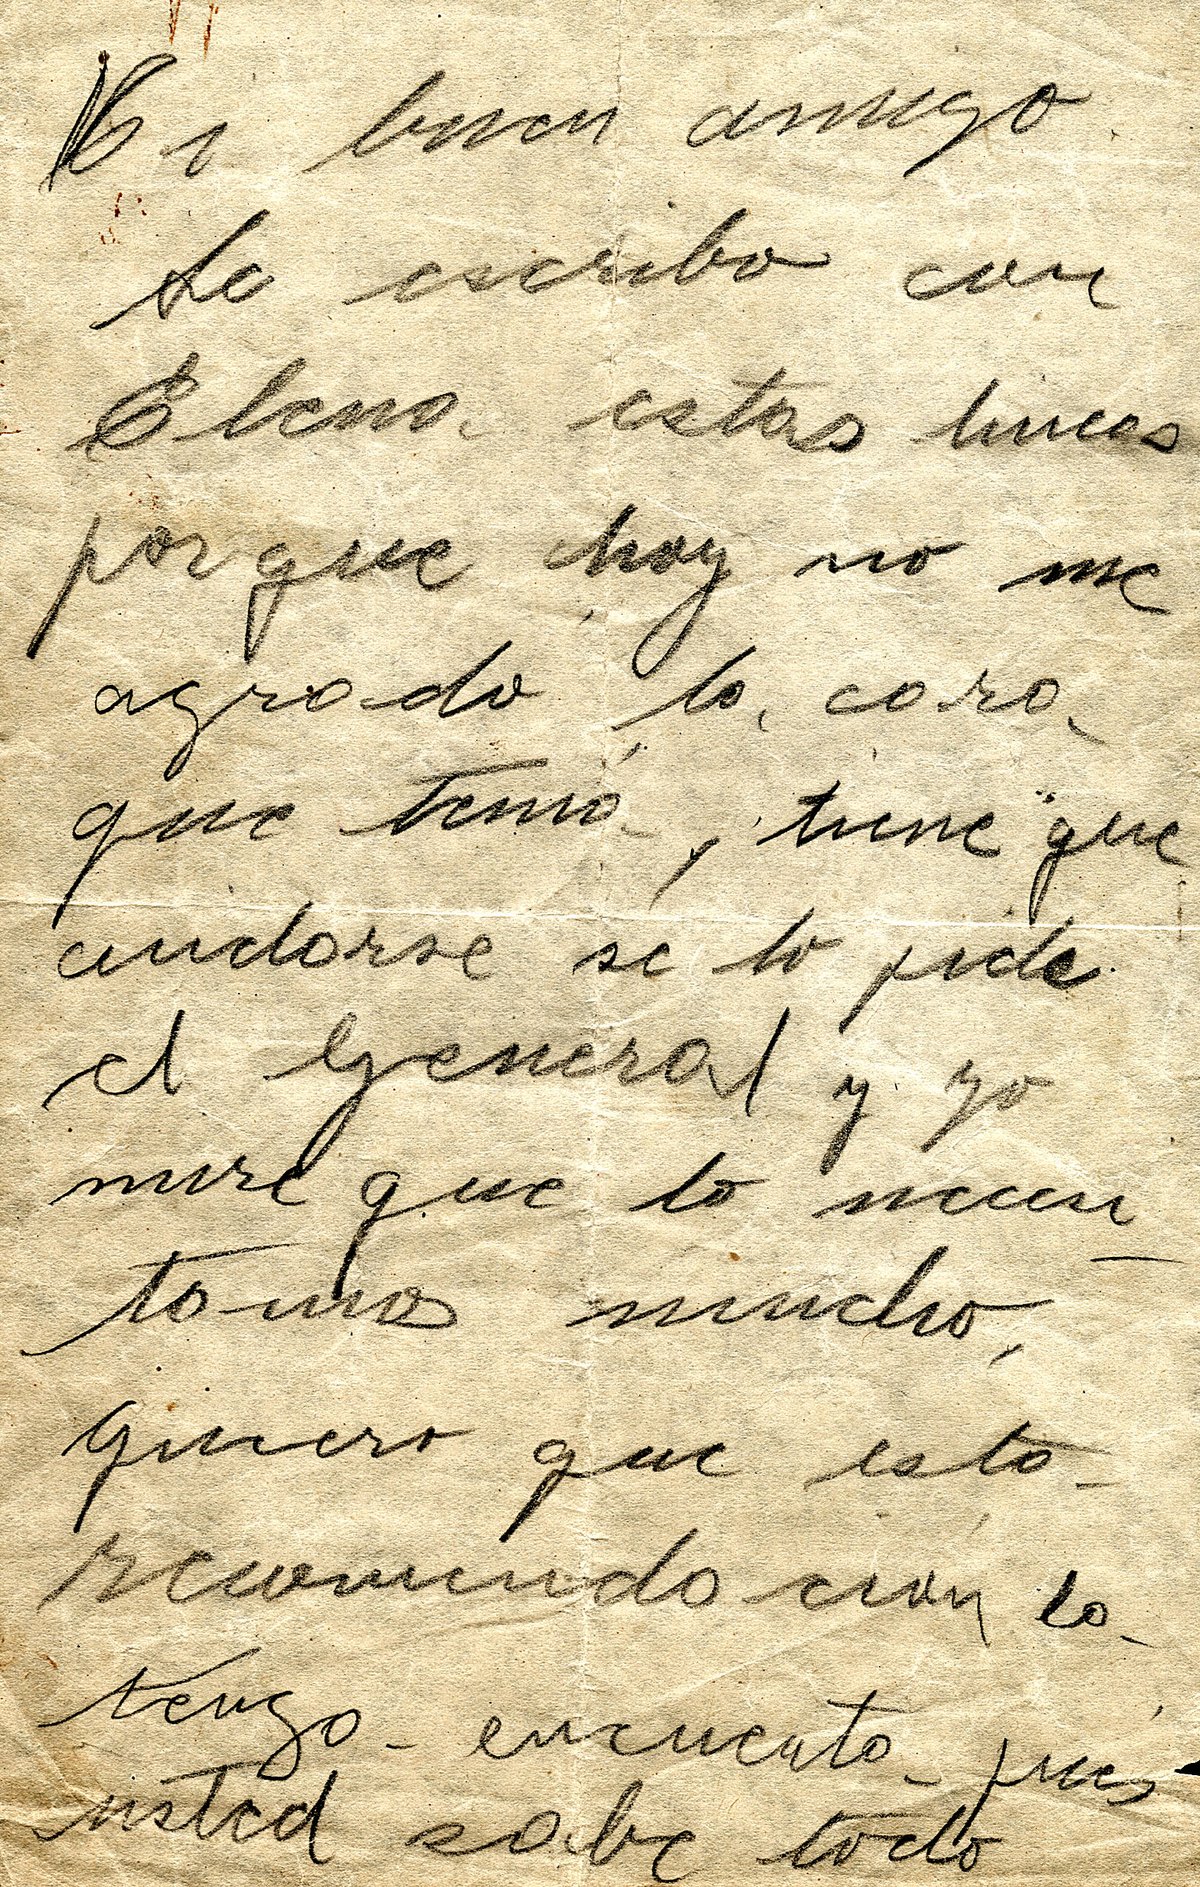 Mi buen amigo
Le escribo con
Elena estas lineas
porque hoy no me
agrado la cara
que tenia, tiene que
cuidarse se lo pide
el General y yo
mire que lo necesi
tamos mucho,
quiero que esta
recomendacion la
tenga encuenta pues
usted sabe todo